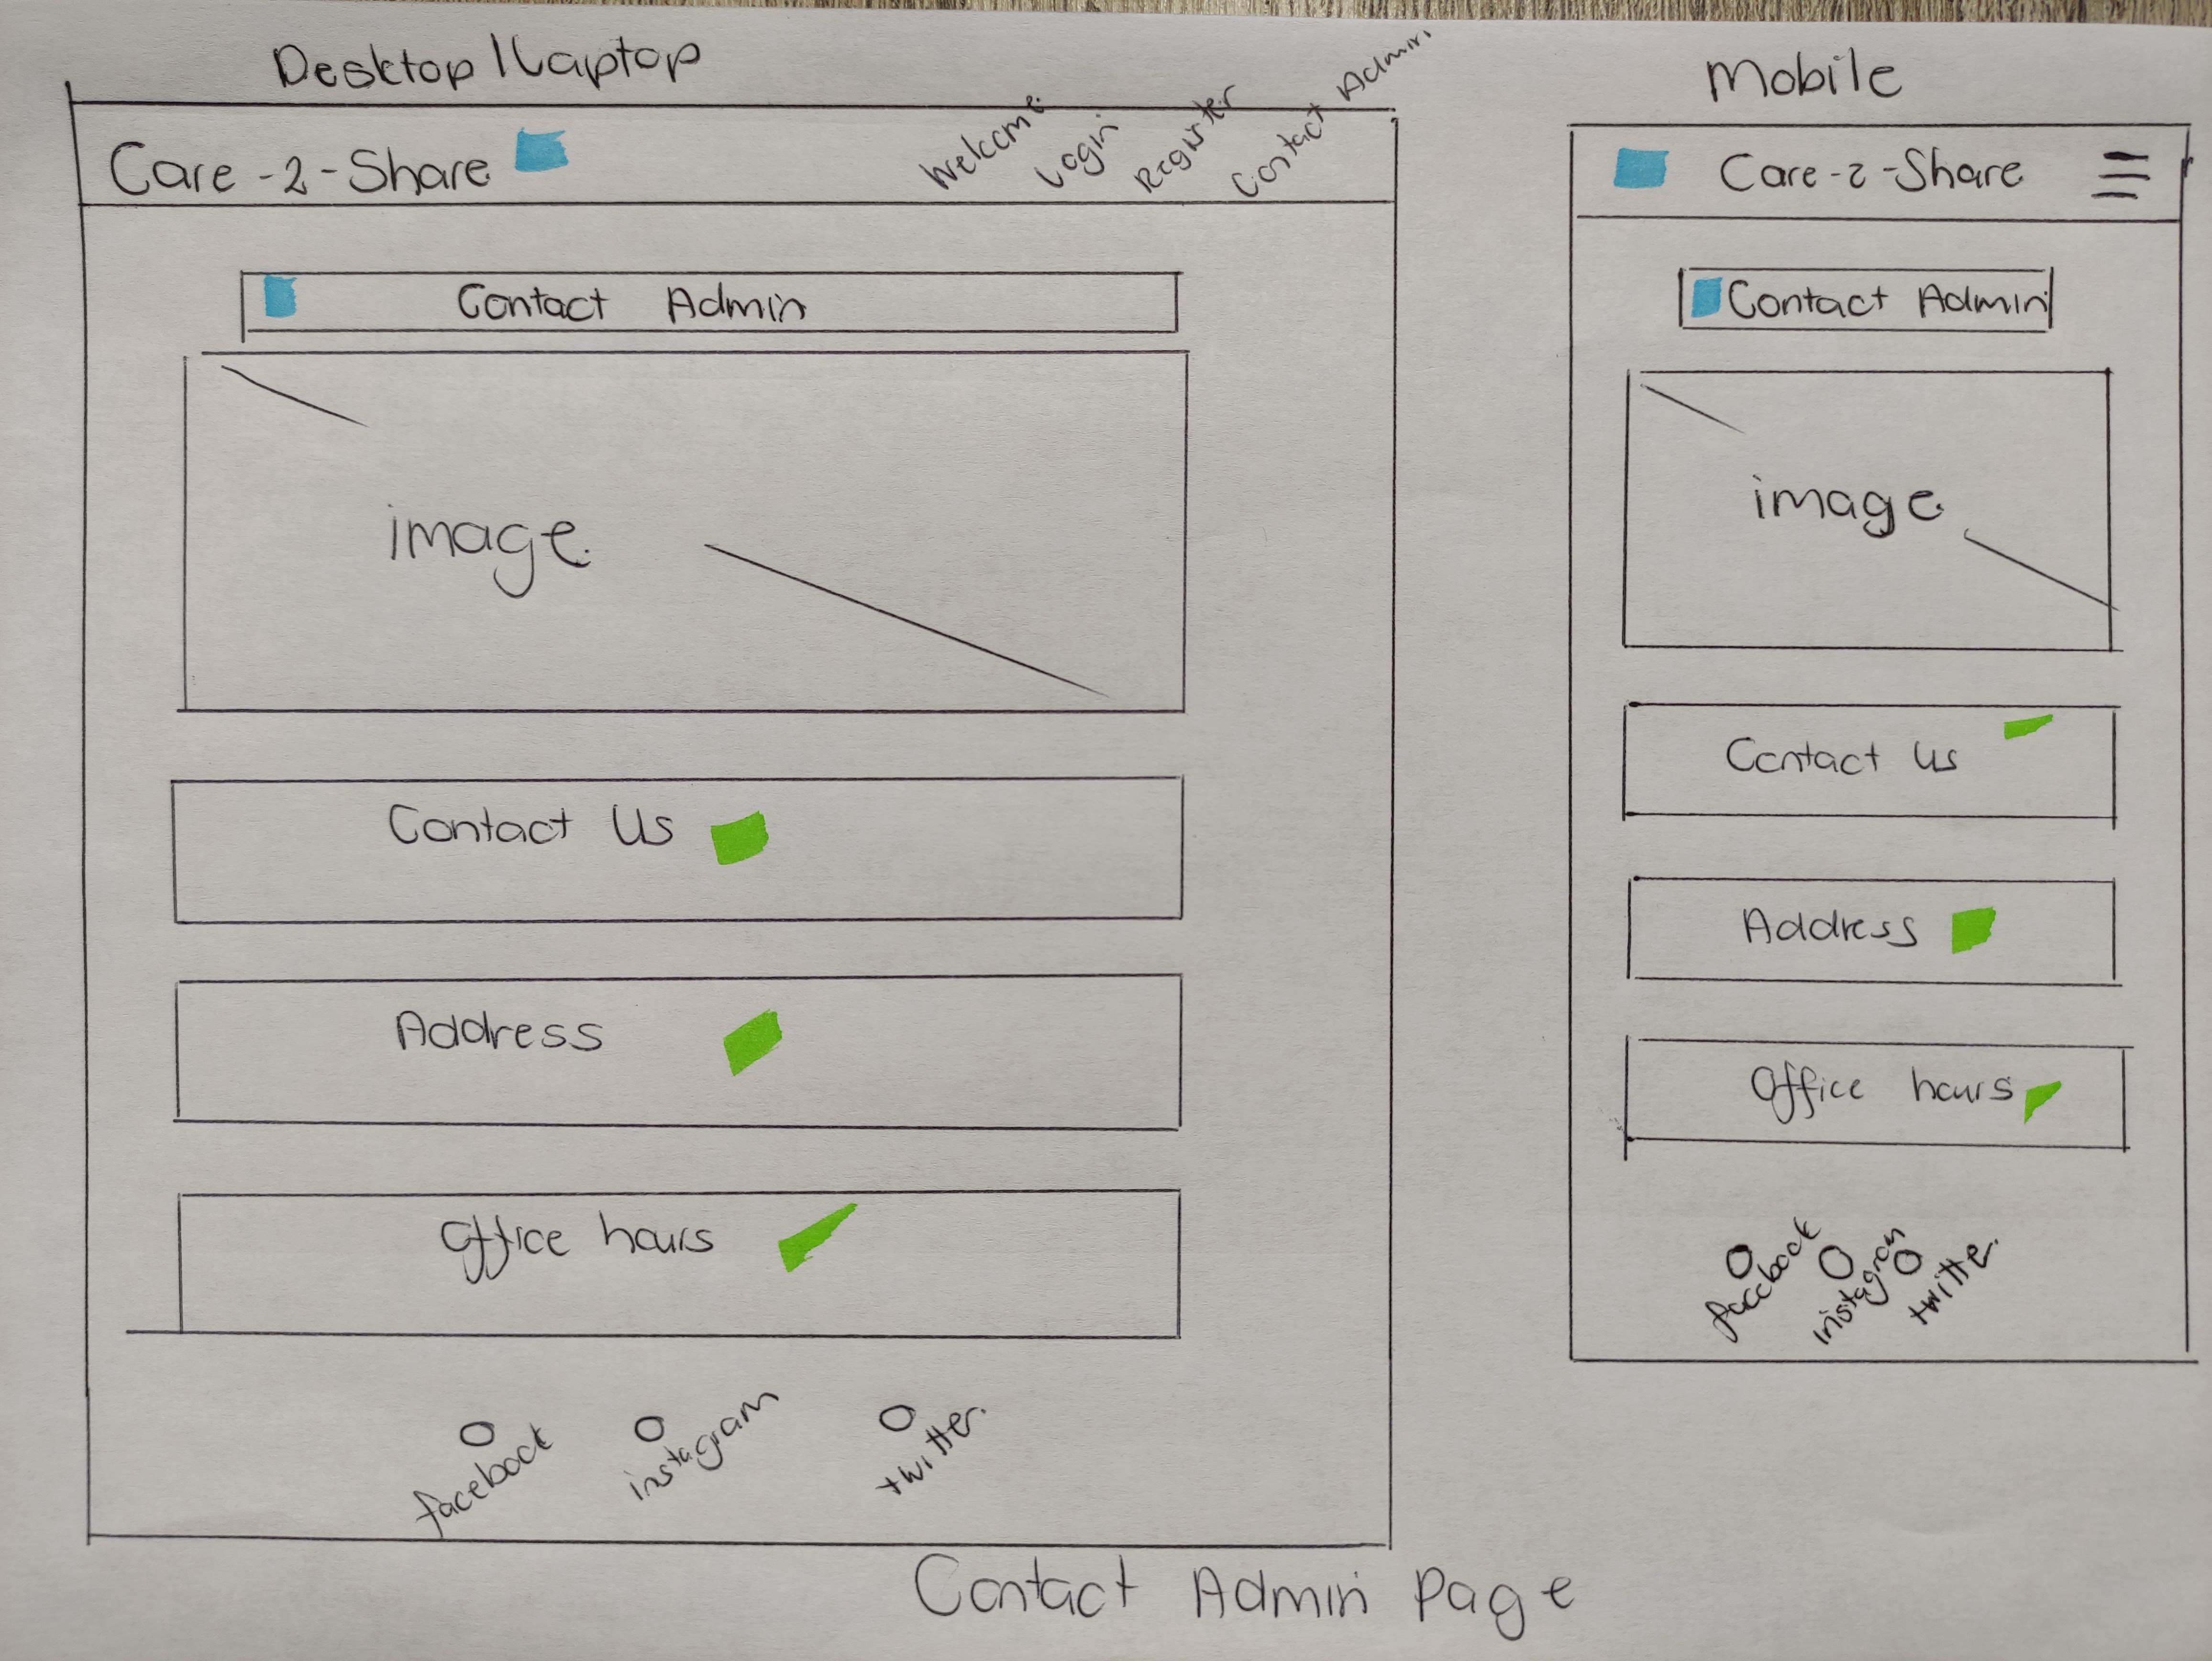 Desktop/Laptop
Care-2-Share
Welcome
Login
Register
Contact Admin
Contact Admin
image
Contact Us
Address
Office hours
facebook
instagram
twitter
Mobile
Care-2-Share
Contact Admin
image
Contact us
Address
Office hours
facebook
instagram
twitter
Contact Admin Page